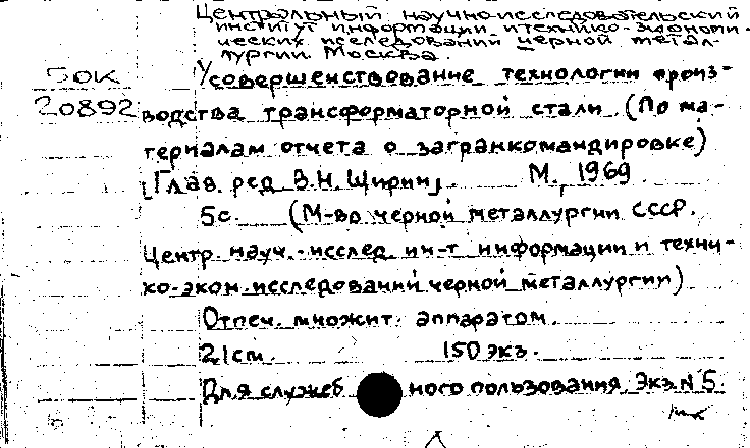 Центральный научно-исследовательский
институт информации и технико-экономи-
ческих исследований черной метал-
лургии. Москва.
50к Усовершенствование технологии произ-
20892 водства трансформаторной стали. (По ма-
териалам отчета о загранкомандировке)
[Глав. ред. В.Н. Ширин]. М., 1969.
5с. (М-во черной металлургии СССР.
Центр. науч.-исслед. ин-т информации и техни-
ко-экон. исследований черной металлургии)
Отпеч. множит. аппаратом.
21см. 150 экз.
Для служебного пользования. Экз. N 5.